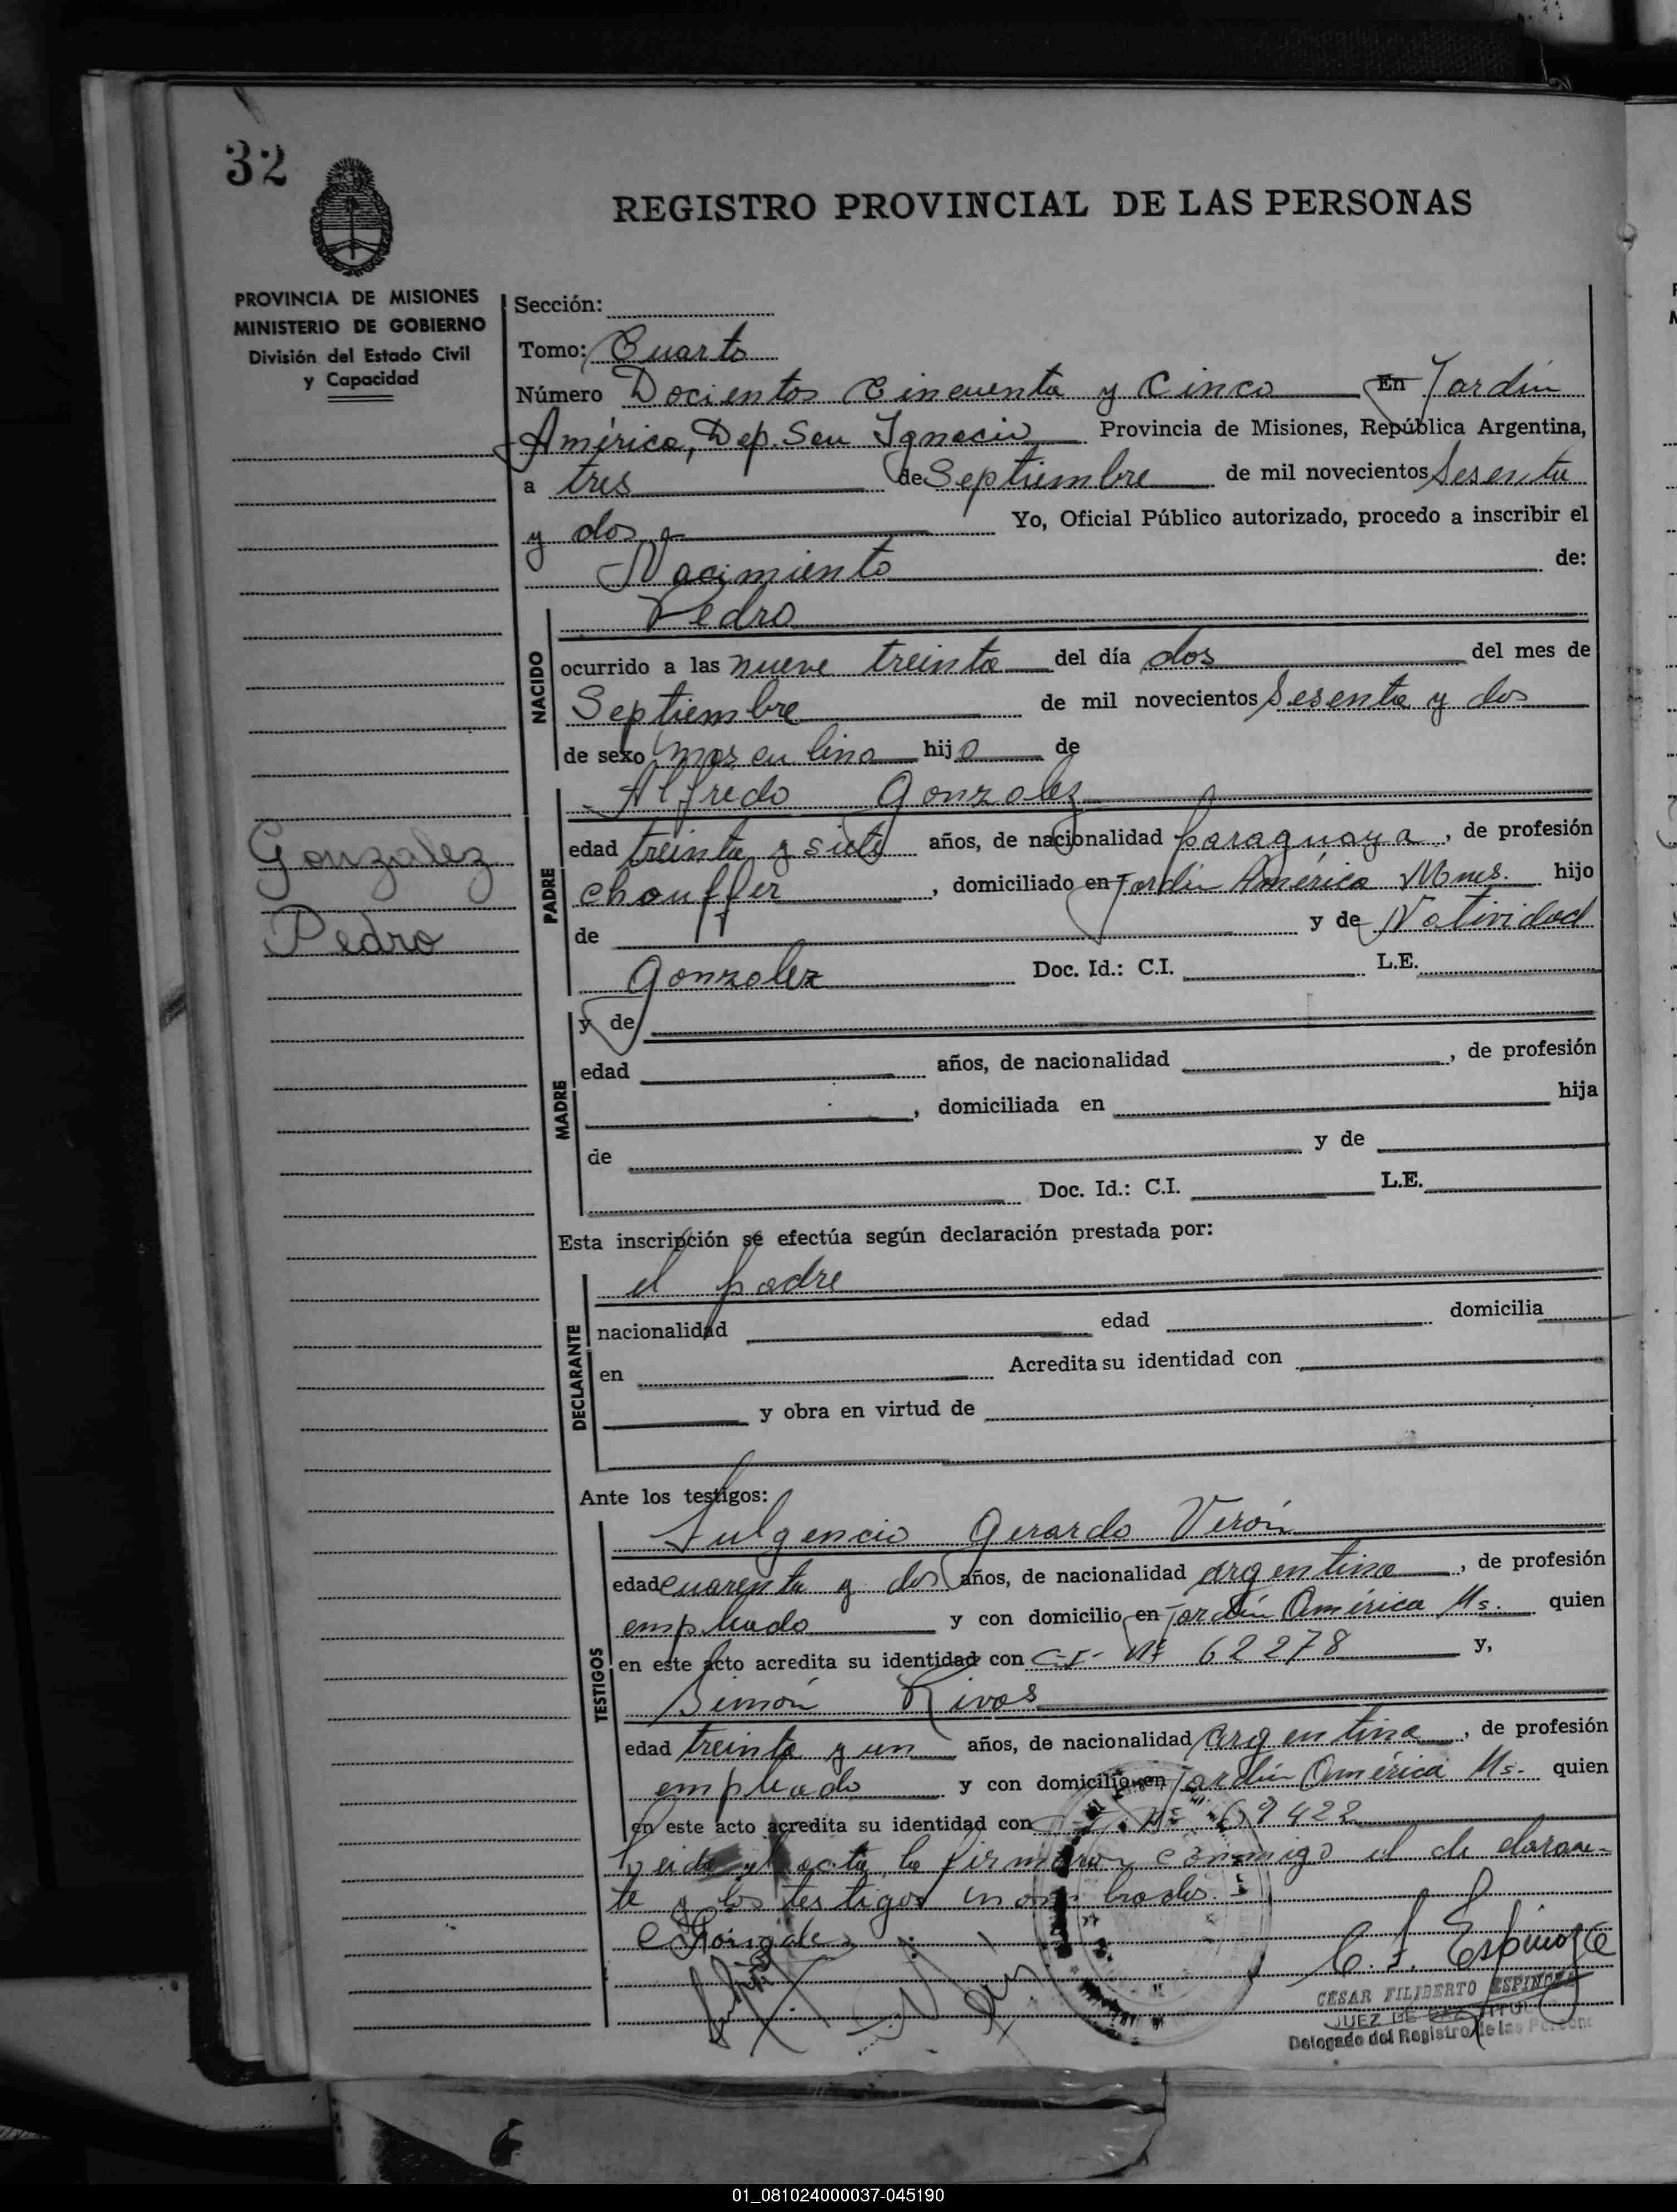 32
REGISTRO PROVINCIAL DE LAS PERSONAS
PROVINCIA DE MISIONES
MINISTERIO DE GOBIERNO
División del Estado Civil
y Capacidad
Sección:
Tomo: Cuarto
Número Docientos Cincuenta y Cinco En Jardín
América, Dep. San Ignacio Provincia de Misiones, República Argentina,
a tres de Septiembre de mil novecientos Sesenta
y dos Yo, Oficial Público autorizado, procedo a inscribir el
Nacimiento de:
NACIDO
Pedro
ocurrido a las nueve treinta del día dos del mes de
Septiembre de mil novecientos Sesenta y dos
de sexo masculino hijo de
PADRE
Alfredo Gonzalez
edad treinta y siete años, de nacionalidad paraguaya, de profesión
chouffer, domiciliado en Jardín América Mnes. hijo
de y de Natividad
Gonzalez Doc. Id.: C.I. L.E.
Gonzalez
Pedro
MADRE
y de
edad años, de nacionalidad , de profesión
, domiciliada en hija
de y de
Doc. Id.: C.I. L.E.
Esta inscripción se efectúa según declaración prestada por:
DECLARANTE
el padre
nacionalidad edad domicilia
en Acredita su identidad con
y obra en virtud de
Ante los testigos:
TESTIGOS
Fulgencio Gerardo Verón
edad cuarenta y dos años, de nacionalidad argentina, de profesión
empleado y con domicilio en Jardín América Ms. quien
en este acto acredita su identidad con C-I- Nº 62278 y,
Simón Rivas
edad treinta y un años, de nacionalidad argentina, de profesión
empleado y con domicilio en Jardín América Ms. quien
en este acto acredita su identidad con Nº 69422
Leida el acta la firmaron conmigo el declaran-
te y los testigos nombrados.
C. F. Espinoza
CESAR FILIBERTO ESPINOZA
JUEZ DE PAZ TITULAR
Delegado del Registro de las Personas
01_081024000037-045190